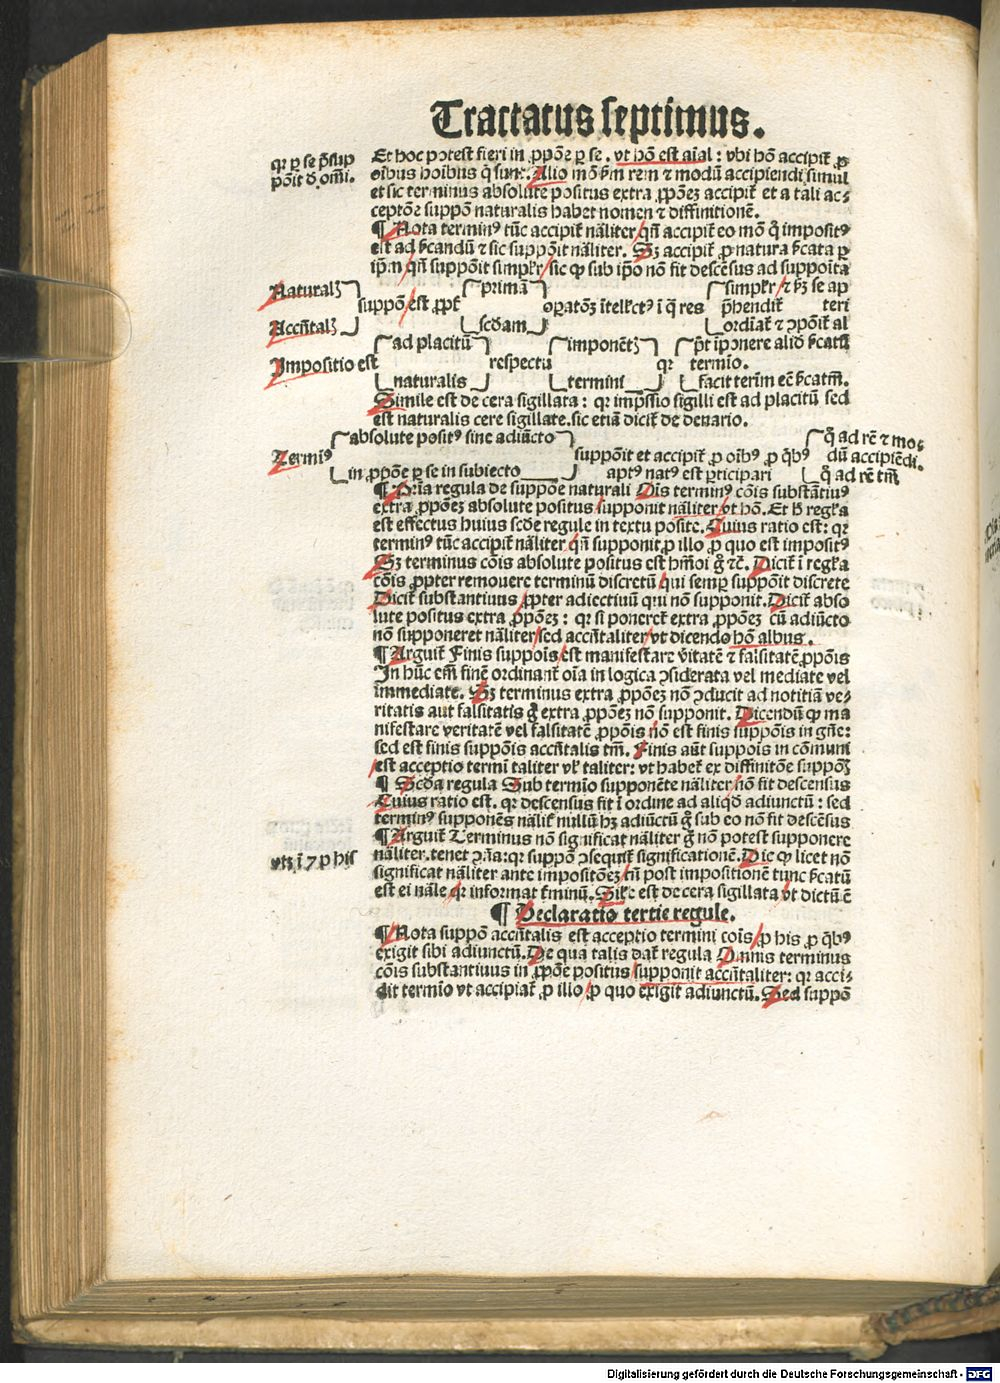 Tractatus septimus.
qꝛ ꝑ se p̄sup
pōit d̄ om̄i.
Et hoc potest fieri in ꝓpōe ꝑ se. vt hō est aīal: vbi hō accipit̄ ꝓ
oībus hoībus q̄ sunt. Alio mō ẜm rem ⁊ modū accipiendi simul
et sic terminus absolute positus extra ꝓpōeꝫ accipit̄ et a tali ac⸗
ceptōe suppō naturalis habet nomen ⁊ diffinitionē.
¶ Nota terminꝰ tūc accipit̄ nāliter qn̄ accipit̄ eo mō q̄ impositꝰ
est ad ẜcandū ⁊ sic suppōit nāliter. Sꝫ accipit̄ ꝓ natura ẜcata ꝑ
ip̄m qn̄ suppōit simplr̄ sic ꝙ sub ip̄o nō fit descēsus ad supposita
Naturalꝫ
Accn̄talꝫ
suppō est ꝓpt̄
primā
scd̄am
oꝑatōꝫ ītellctꝰ ī q̄ res
simplr̄ ⁊ ẜꝫ se ap
p̄hendit̄ teri
ordīat̄ ⁊ ↄpōit̄ al
Impositio est
ad placitū
naturalis
respectu
imponētꝫ
termini
qꝛ
p̄t īponere aliqd̄ ẜcatū
termīo.
facit terīm eē ẜcatm̄.
Simile est de cera sigillata: qꝛ imp̄ssio sigilli est ad placitū sed
est naturalis cere sigillate. sic etiā dicit̄ de denario.
Termīꝰ
absolute positꝰ sine adiūcto
in ꝓpōe ꝑ se in subiecto
suppōit et accipit̄ ꝓ oībꝰ ꝓ q̄bꝰ
aptꝰ natꝰ est ꝑticipari
q̄ ad rē ⁊ mo⸗
dū accipiēdi.
q̄ ad rē tm̄
¶ Pria regula de suppōe naturali Ois terminꝰ cōis substātiuꝰ
extra ꝓpōeꝫ absolute positus supponit nāliter vt hō. Et h̄ regl̄a
est effectus huius scd̄e regule in textu posite. Cuius ratio est: qꝛ
terminꝰ tūc accipit̄ nāliter qn̄ supponit ꝓ illo ꝓ quo est impositꝰ
Sꝫ terminus cōis absolute positus est hmōi g̊ ⁊c̄. Dicit̄ ī regl̄a
cōis ꝓpter remouere terminū discretū qui semꝑ suppōit discrete
Dicit̄ substantiuus ꝓpter adiectiuū qui nō supponit. Dicit̄ abso
lute positus extra ꝓpōeꝫ: qꝛ si poneret̄ extra ꝓpōeꝫ cū adiūcto
nō supponeret nāliter sed accn̄taliter vt dicendo hō albus.
¶ Arguit̄ Finis suppōis est manifestare v̄itatē ⁊ falsitatē ꝓpōis
In hūc em̄ finē ordinant̄ oīa in logica ↄsiderata vel mediate vel
immediate. Sꝫ terminus extra ꝓpōeꝫ nō ↄducit ad notitiā ve⸗
ritatis aut falsitatis g̊ extra ꝓpōeꝫ nō supponit. Dicendū ꝙ ma
nifestare veritatē vel falsitatē ꝓpōis nō est finis suppōis in gn̄e:
sed est finis suppōis accn̄talis tm̄. Finis aūt suppōis in cōmuni
est acceptio termī taliter vl̄ taliter: vt habet̄ ex diffinitōe suppōꝫ
¶ Scd̄a regula Sub termīo supponēte nāliter nō fit descensus
Cuius ratio est. qꝛ descensus fit ī ordine ad aliqd̄ adiunctū: sed
terminꝰ supponēs nālit̄ nullū hꝫ adiūctū g̊ sub eo nō fit descēsus
¶ Arguit̄ Terminus nō significat nāliter g̊ nō potest supponere
nāliter. tenet ↄn̄a: qꝛ suppō ↄsequit̄ significationē. Dic ꝙ licet nō
significat nāliter ante impositōeꝫ tn̄ post impositionē tunc ẜcatū
est ei nāle qꝛ informat t̄minū. Sil̄e est de cera sigillata vt dictū ē
¶ Declaratio tertie regule.
¶ Nota suppō accn̄talis est acceptio termini cōis ꝓ his ꝓ q̄bꝰ
exigit sibi adiunctū. De qua talis dat̄ regula Omnis terminus
cōis substantiuus in ꝓpōe positus supponit accn̄taliter: qꝛ acci⸗
dit termīo vt accipiat̄ ꝓ illo ꝓ quo exigit adiunctū. Sed suppō
Digitalisierung gefördert durch die Deutsche Forschungsgemeinschaft - DFG